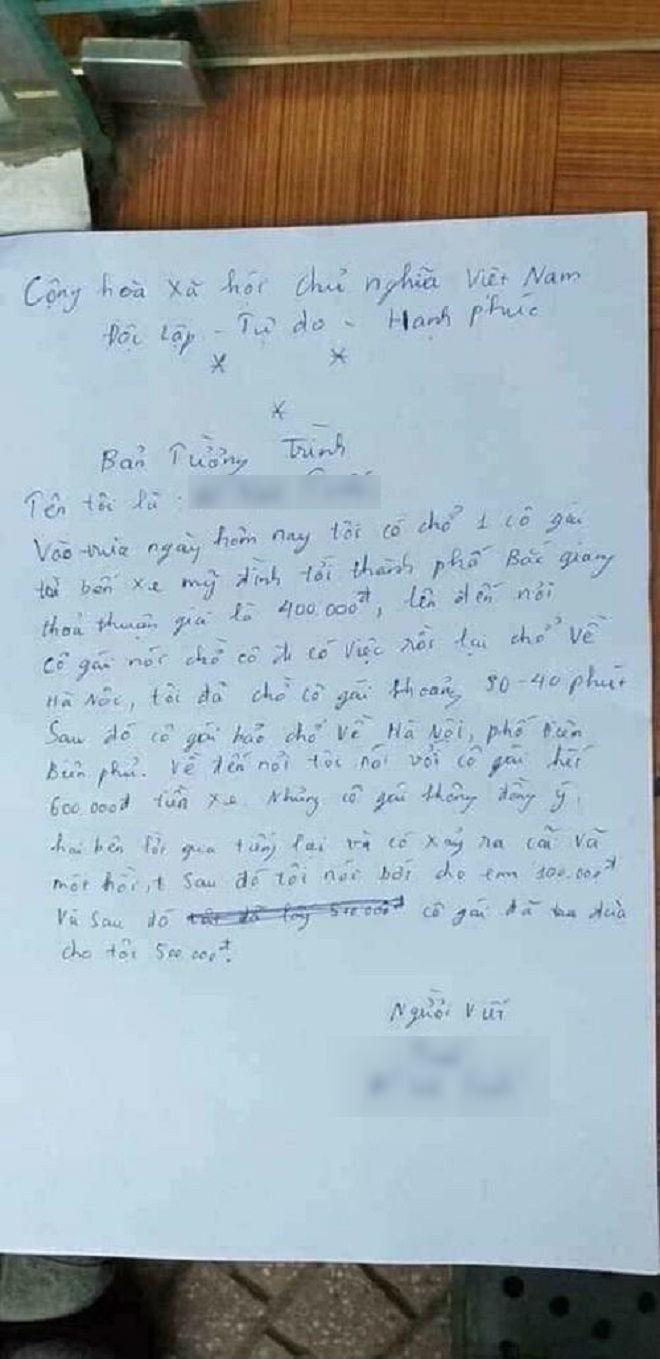 Cộng hoà xã hội chủ nghĩa Việt Nam
Độc lập - Tự do - Hạnh phúc
Bản Tường Trình
Tên tôi là :
Vào trưa ngày hôm nay tôi có chở 1 cô gái
tại bến xe mỹ đình tới thành phố Bắc giang
thoả thuận giá là 400.000đ, lên đến nơi
cô gái nói chờ cô đi có việc rồi lại chở về
Hà Nội, tôi đã chờ cô gái khoảng 30-40 phút
Sau đó cô gái bảo chở về Hà Nội, phố Điện
Biên phủ. Về đến nơi tôi nói với cô gái hết
600.000đ tiền xe. Nhưng cô gái không đồng ý,
hai bên lời qua tiếng lại và có xảy ra cãi vã
một hồi, Sau đó tôi nói bớt cho em 100.000đ
Và sau đó cô gái đã đưa
cho tôi 500.000đ.
Người viết